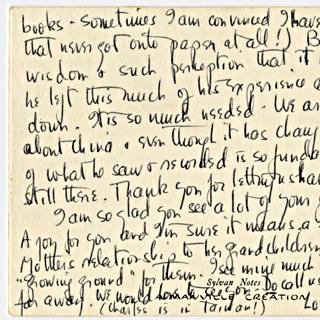 books - sometimes I am convinced I have
that never got onto paper at all!) B
wisdom & such perception that it
he left this much of his experience a
down. It is so much needed. We are
about china & even though it has chang
of what he saw & recorded is so funda
still there. Thank you for letting us sha
I am so glad you see a lot of your g
A joy for you and I'm sure it means a
Mothers relationship to her grandchildren
"growing ground" for them. I see mine much
Sylvan Notes Do call us
far away. We would
HUMANVILLE CREATION
(Charles is in Taiwan!) Lo